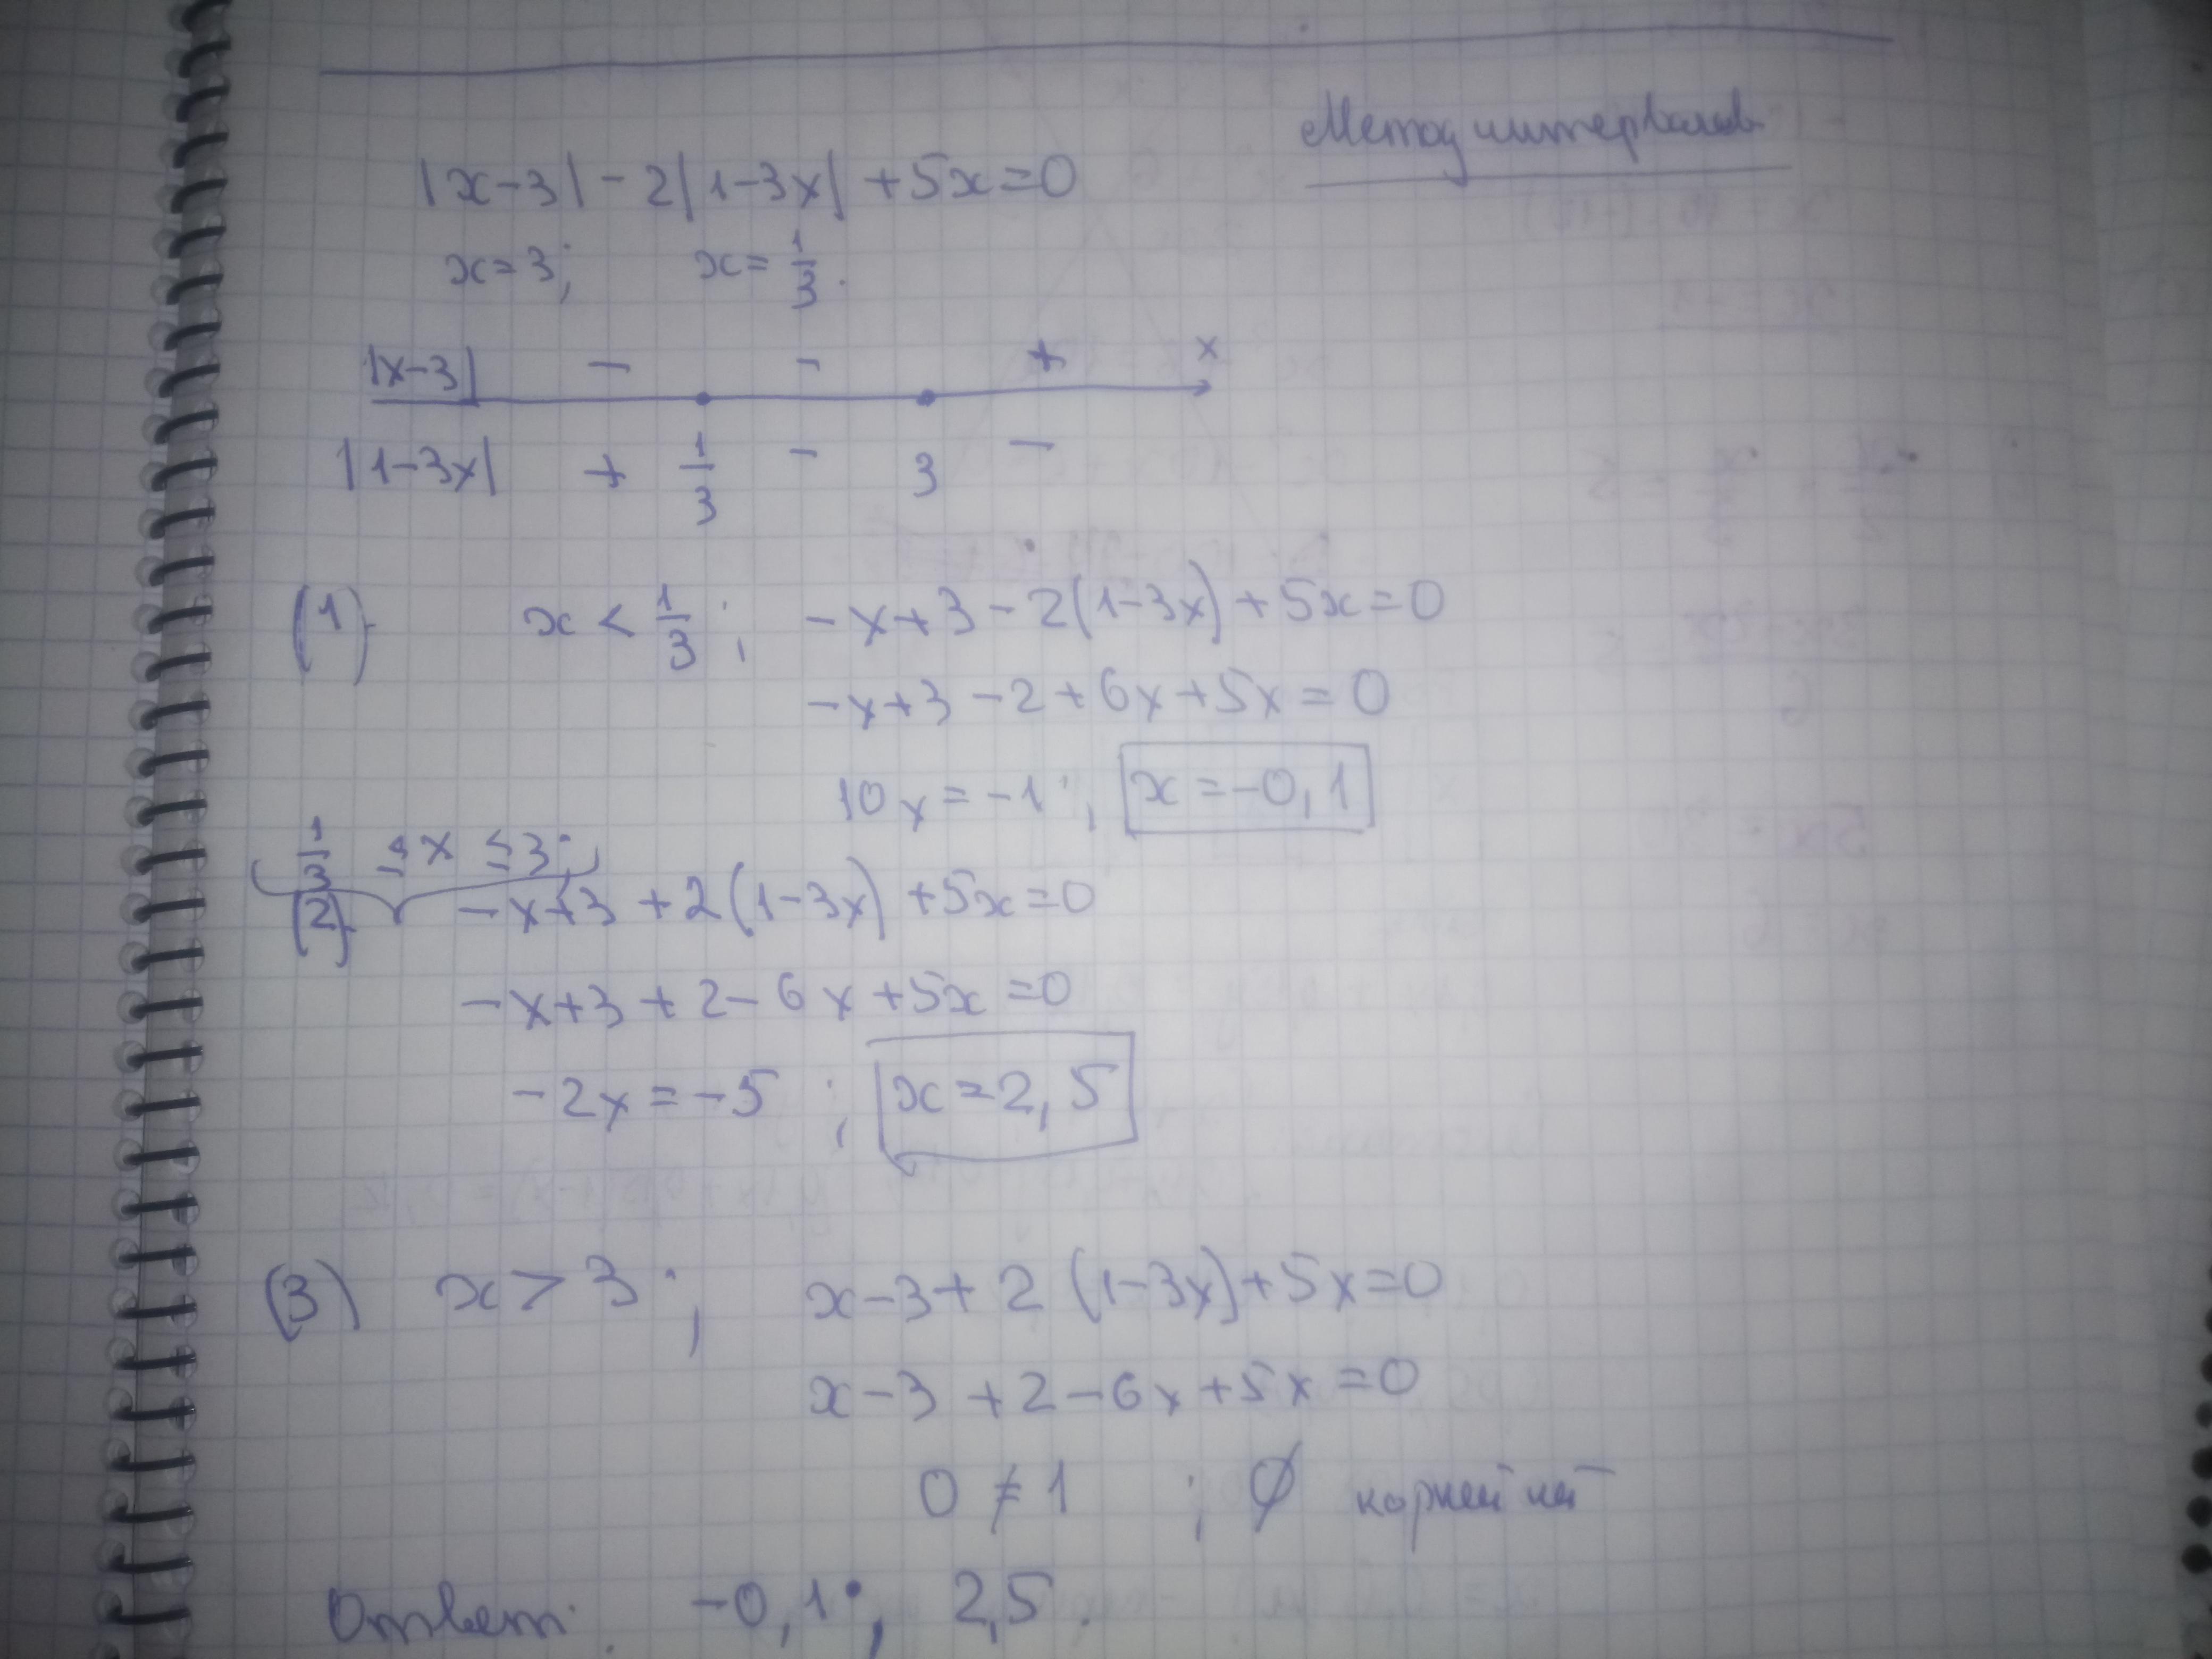 Метод интервалов
|x-3| - 2|1-3x| + 5x = 0
x = 3; x = 1/3.
|x-3| - - + x
|1-3x| + 1/3 - 3 -
(1) x < 1/3; -x+3-2(1-3x)+5x=0
-x+3-2+6x+5x=0
10x = -1; x = -0,1
1/3 ≤ x ≤ 3;
(2) -x+3+2(1-3x)+5x=0
-x+3+2-6x+5x=0
-2x = -5; x = 2,5
(3) x > 3; x-3+2(1-3x)+5x=0
x-3+2-6x+5x=0
0 ≠ 1; Ø корней нет
Ответ: -0,1; 2,5.